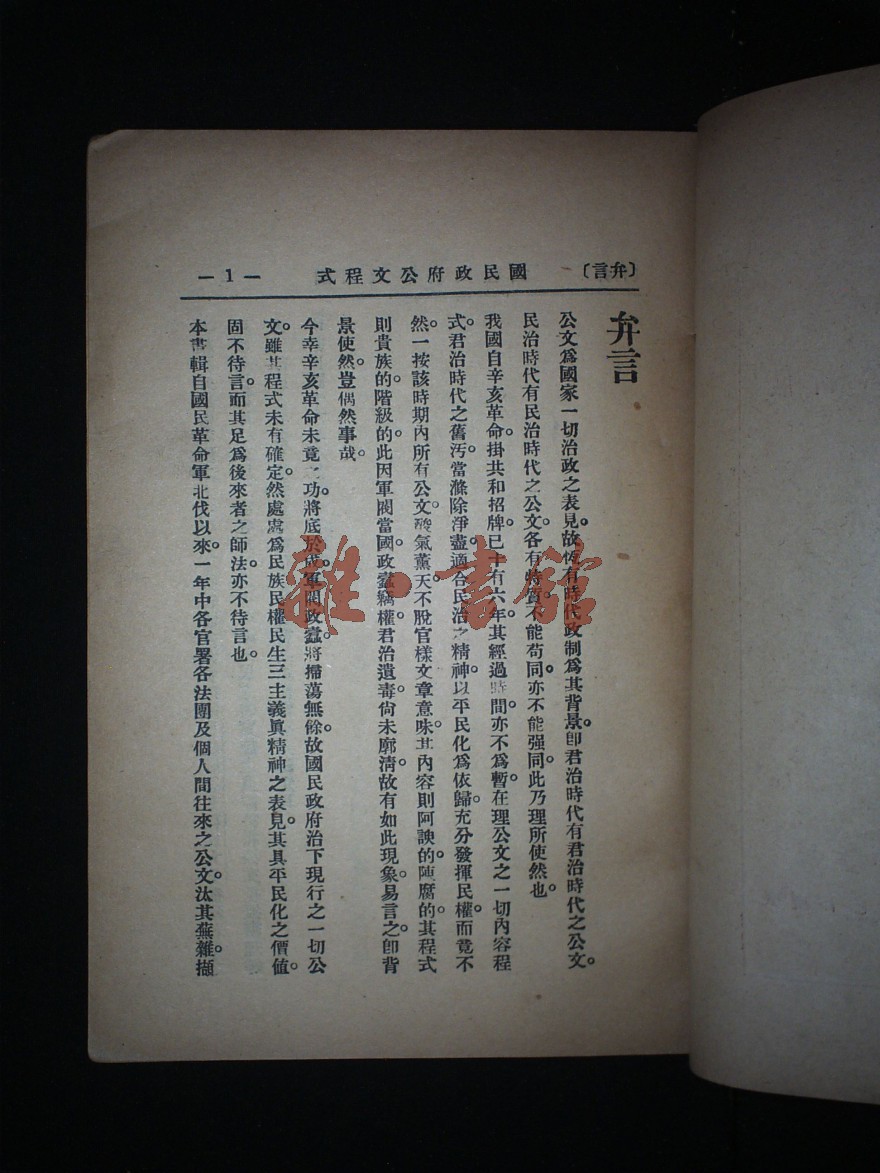 〔弁言〕 國民政府公文程式 —1—
弁言
公文爲國家一切治政之表見。故恆有時代政制爲其背景。卽君治時代有君治時代之公文。
民治時代有民治時代之公文。各有特質。不能苟同。亦不能强同。此乃理所使然也。
我國自辛亥革命。掛共和招牌。已十有六年。其經過時間。亦不爲暫。在理公文之一切內容程
式。君治時代之舊汚。當滌除淨盡。適合民治之精神。以平民化爲依歸。充分發揮民權。而竟不
然。一按該時期內所有公文。酸氣薰天。不脫官樣文章意味。其內容則阿諛的。陳腐的。其程式
則貴族的。階級的。此因軍閥當國。政蠹竊權。君治遺毒。尙未廓淸。故有如此現象。易言之。卽背
景使然。豈偶然事哉。
今幸辛亥革命未竟之功。將底於成。軍閥政蠹。將掃蕩無餘。故國民政府治下現行之一切公
文。雖其程式未有確定。然處處爲民族民權民生三主義眞精神之表見。其具平民化之價値。
固不待言。而其足爲後來者之師法。亦不待言也。
本書輯自國民革命軍北伐以來。一年中各官署各法團及個人間往來之公文。汰其蕪雜。擷
雜·書館